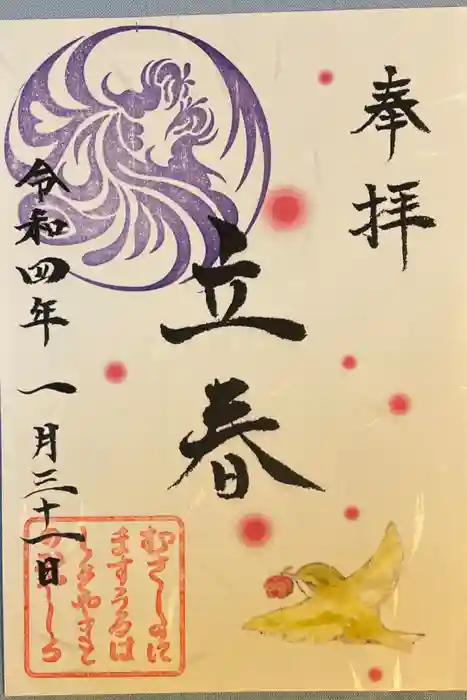 奉拝
立春
令和四年一月三十一日
むさしのに
ますうるは
しきやさと